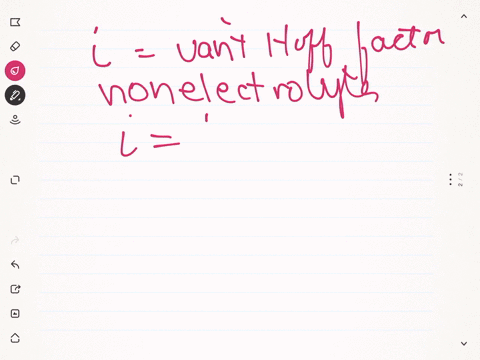 i = van't Hoff factor
nonelectrolytes
i =